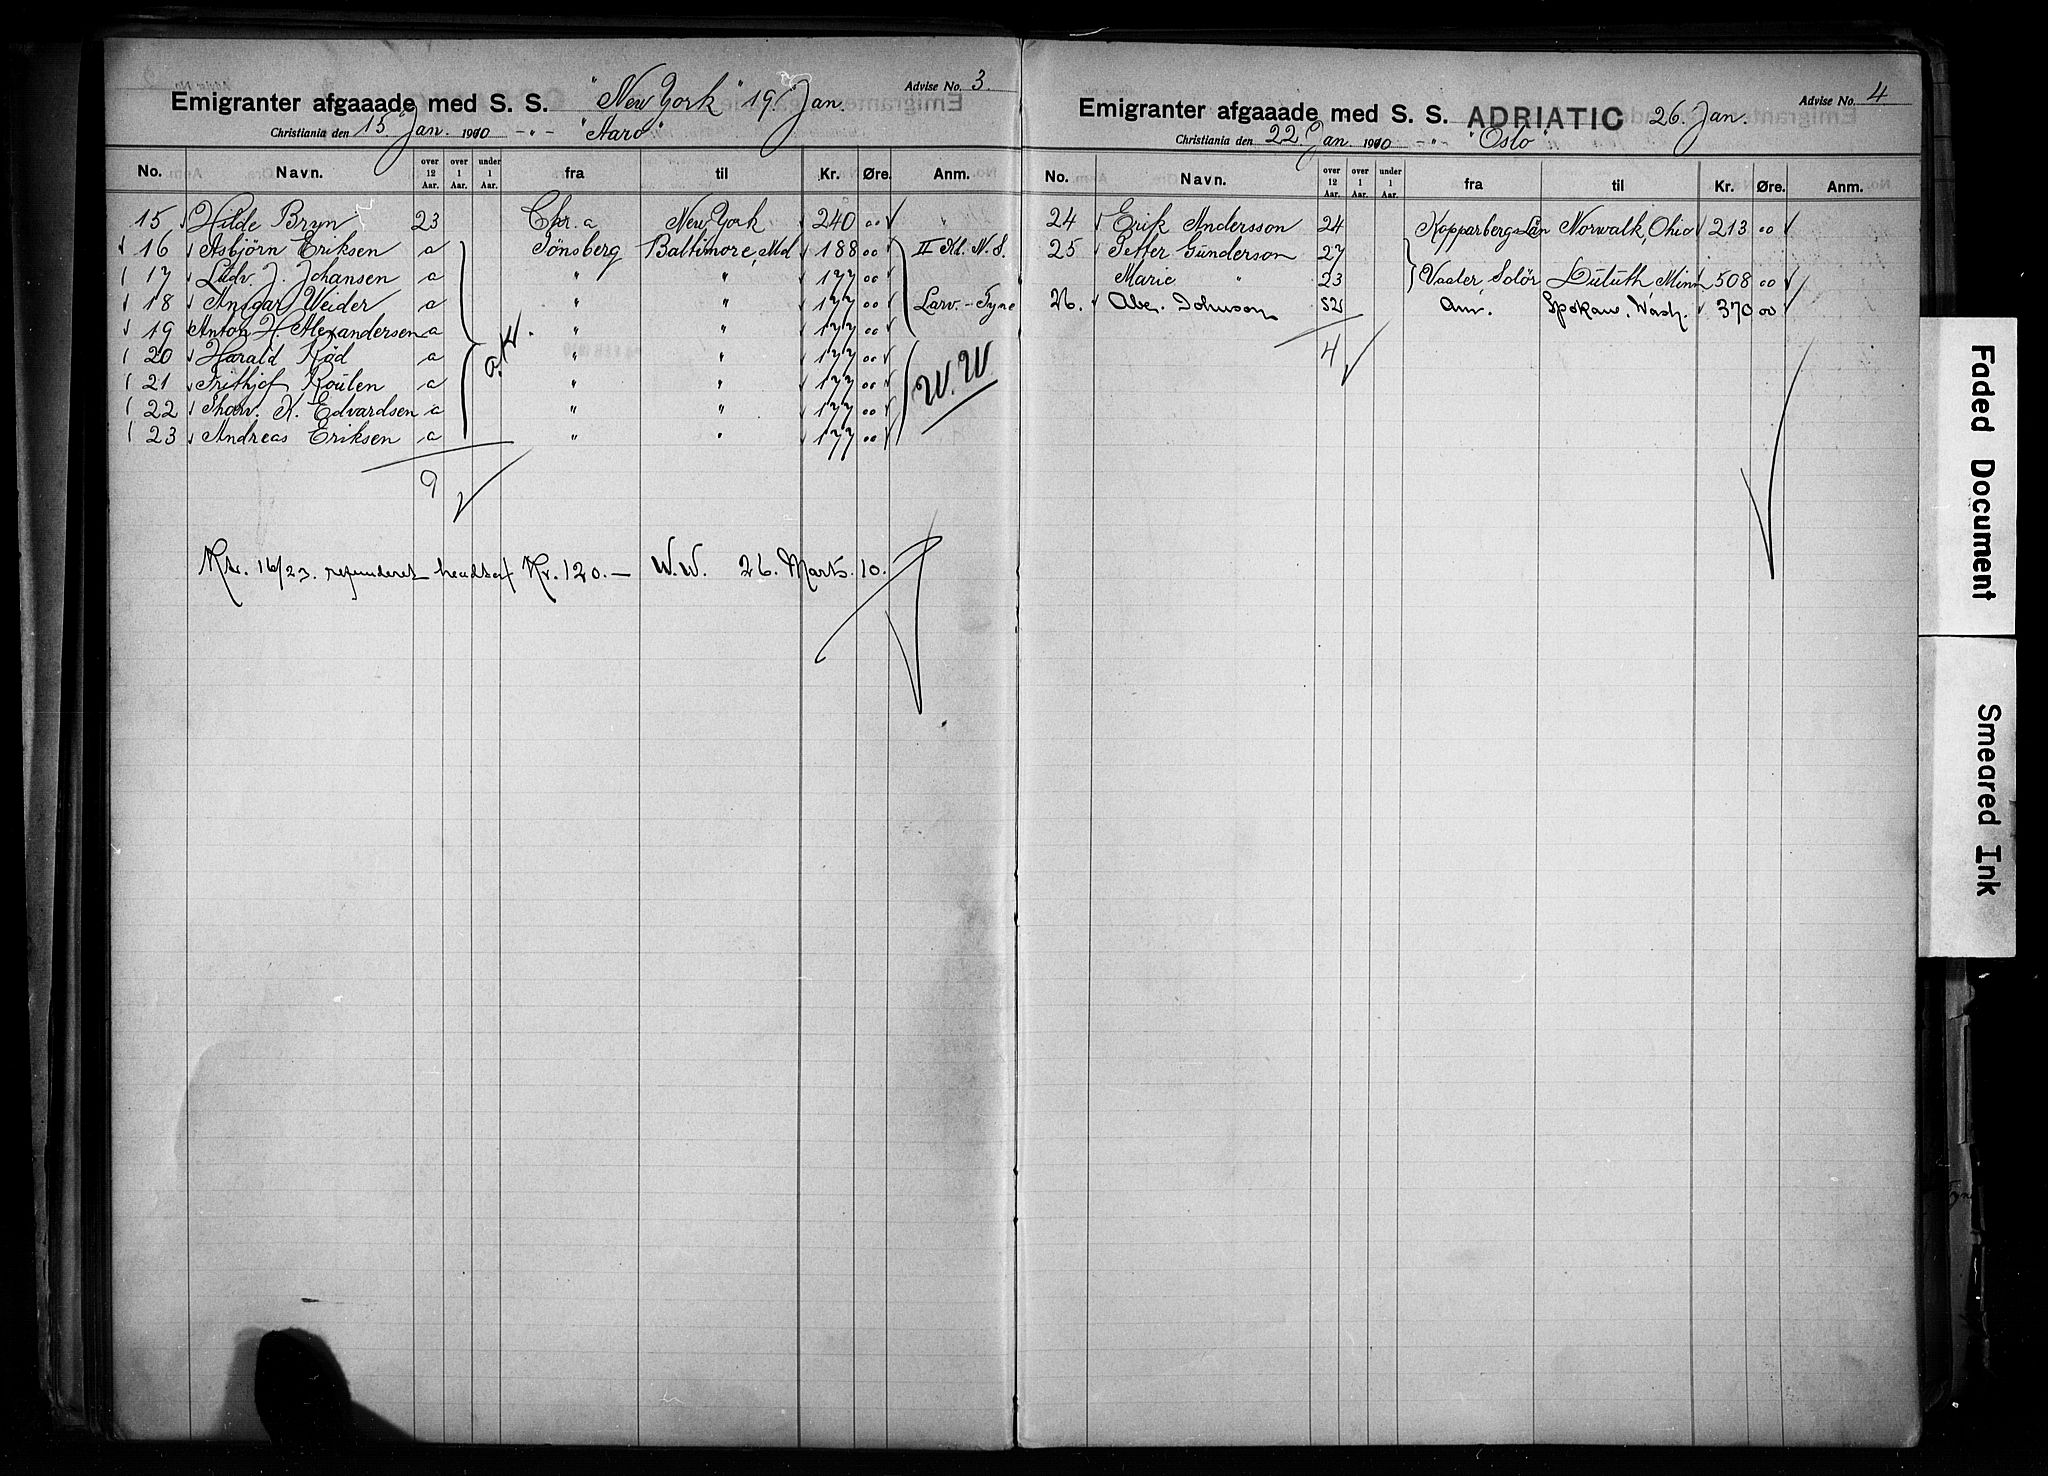 Advise No. 3.
Emigranter afgaaade med S. S. "New York" 19. Jan.
Christiania den 15. Jan. 1910 -"- "Aaro"
No. Navn. over 12 Aar. over 1 Aar. under 1 Aar. fra til Kr. Øre. Anm.
15 Hilde Bryn 23 Chr.a New York 240 00
16 Asbjörn Eriksen a Tönsberg Baltimore, Md 188 00 II Kl. N.S.
17 Ludv. J. Johansen a " " 177 00
18 Ansgar Weider a " " 177 00 Larv.-Tyne
19 Anton H. Alexandersen a " " 177 00
20 Harald Röd a " " 177 00
21 Frithjof Roulen a " " 177 00 W.W
22 Thorv. K. Edvardsen a " " 177 00
23 Andreas Eriksen a " " 177 00
9
16/23. refunderet Kr. 120.— W.W. 26. Marts. 10.
Advise No. 4
Emigranter afgaaade med S. S. ADRIATIC 26. Jan.
Christiania den 22 Jan. 1910 -"- "Oslo"
No. Navn. over 12 Aar. over 1 Aar. under 1 Aar. fra til Kr. Øre. Anm.
24 Erik Andersson 24 Kopparbergs Län Norwalk, Ohio 213 00
25 Petter Gunderson 27
Marie " 23 Vaaler, Solör Duluth Minn 508 00
26. Abe. Johnson 52 Am. Spokane, Wash. 370 00
4
Faded Document
Smeared Ink